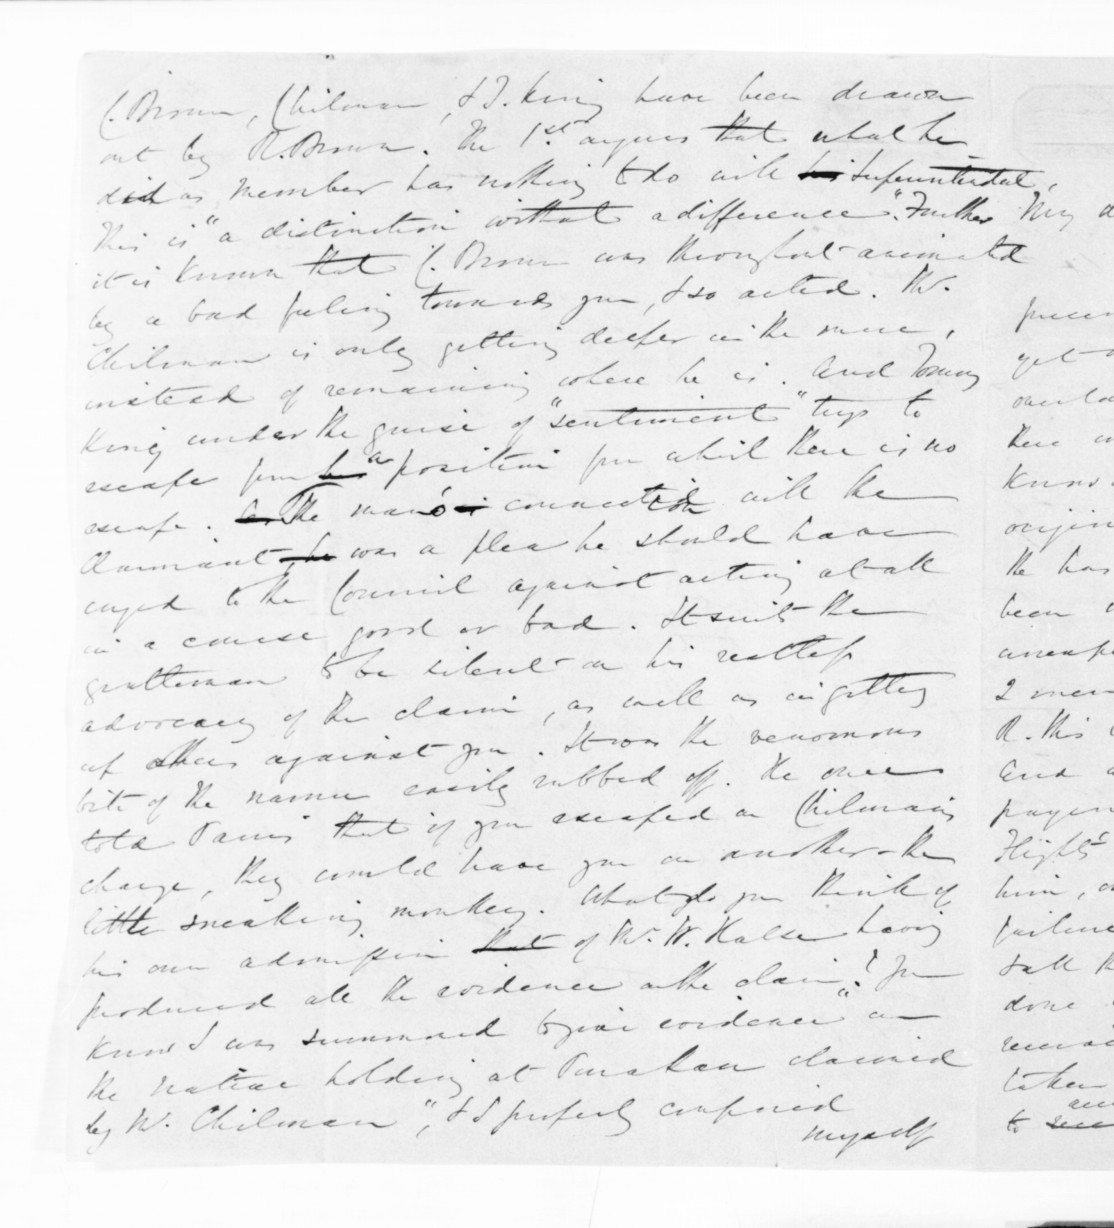 C. Brown, Chilman, & T. King have been drawn
out by R. Brown. The 1st argues that what he
did as member has nothing to do with his Superintendt.
This is "a distinction without a difference". Further
it is known that C. Brown was throughout animated
by a bad feeling towards you, & so acted. Mr.
Chilman is only getting deeper in the mire,
instead of remaining where he is. And Tommy
King under the guise of "sentiment" trys to
escape from a position from which there is no
escape. The man's connection with the
Claimant, he was a plea he should have
urged to the Council against acting at all
in a course good or bad. It suits the
gentleman to be silent on his restless
advocacy of the claim, as well as in getting
up others against you. It was the venomous
bite of the easily rubbed off. He once
told that if you escaped on Chilman's
charge, they would have you on another - the
little sneaking monkey. What do you think of
his own admission that of Mr. W. Halse having
produced all the evidence on the claim? You
know I was summoned to give evidence "on
the native holding at claimed
by W. Chilman", & I properly confined
myself
My d
yet
there
Know
origin
He has
been
2
R. this
And
him,
done
taken
to